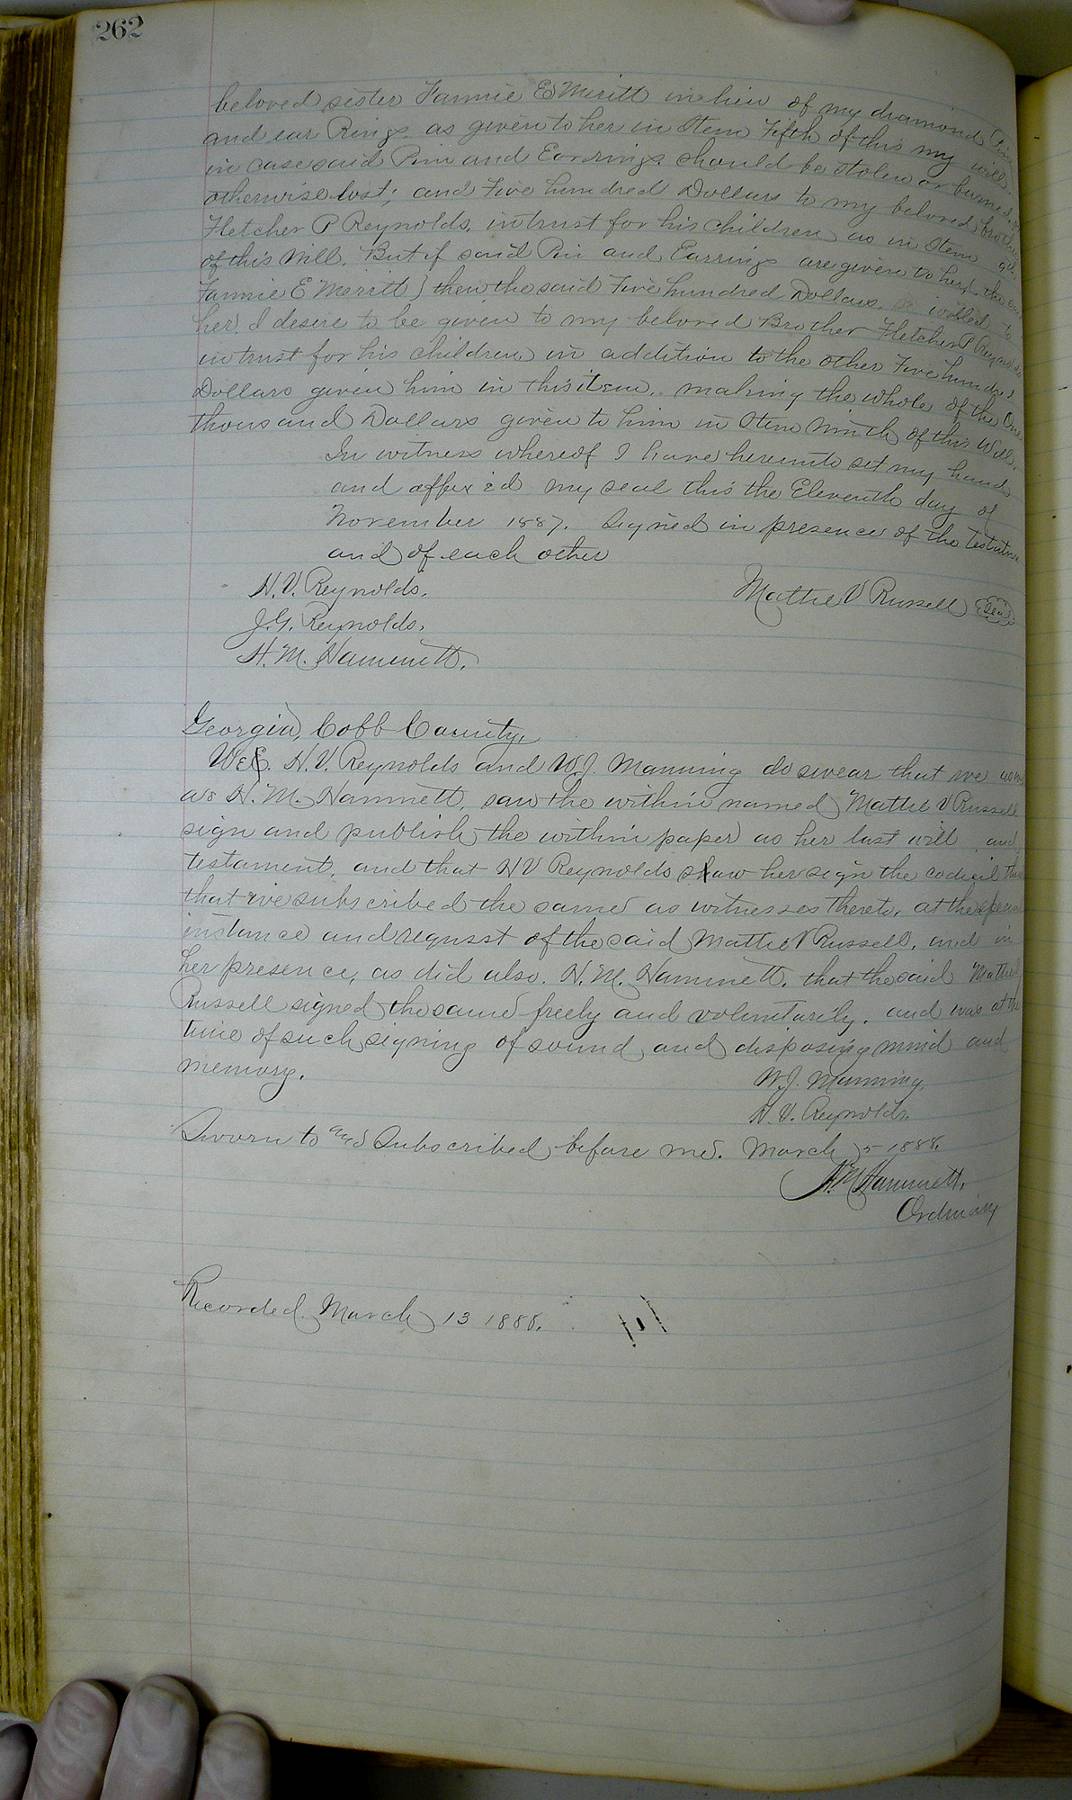 262
beloved sister Fannie E Merritt in lieu of my diamond Pin
and ear Rings as given to her in Item Fifth of this my will,
in case said Pin and Earrings should be stolen or burned, or
otherwise lost; and Five hundred Dollars to my beloved brother
Fletcher P Reynolds, in trust for his children as in Item 9th
of this Will. But if said Pin and Earrings are given to her (the
Fannie E Merritt) then the said Five hundred Dollars so willed to
her I desire to be given to my beloved Brother Fletcher P Reynolds
in trust for his children in addition to the other Five hundred
Dollars given him in this item, making the whole of the One
thousand Dollars given to him in Item Ninth of this Will.
In witness whereof I have hereunto set my hand
and affixed my seal this the Eleventh day of
November 1887. Signed in presence of the testatrix
and of each other
H.V. Reynolds. Mattie V Russell Seal
J.G. Reynolds.
H.M. Hammett.
Georgia, Cobb County,
We H.V. Reynolds and W.J. Manning do swear that we
as H.M. Hammett, saw the within named Mattie V Russell
sign and publish the within paper as her last will and
testament, and that HV Reynolds saw her sign the codicil
that we subscribed the same as witnesses thereto, at the special
instance and requsst of the said Mattie V Russell, and in
her presence, as did also H.M. Hammett, that the said Mattie
Russell signed the same freely and voluntarily, and was at the
time of such signing of sound and disposing mind and
memory.
W.J. Manning.
H.V. Reynolds.
Sworn to and Subscribed before me. March 5 1888.
H M Hammett.
Ordinary
Recorded March 13 1888.